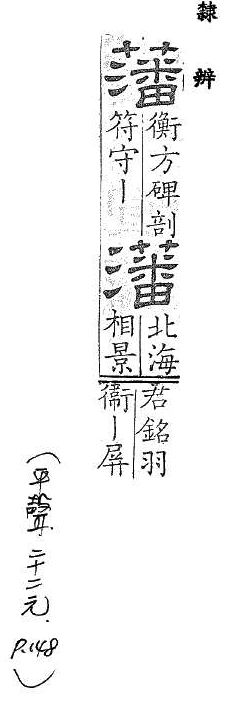 隸辨
藩
衡方碑剖
符守｜
藩
北海
相景
君銘羽
衞｜屏
（平聲.二十二元.P.148）